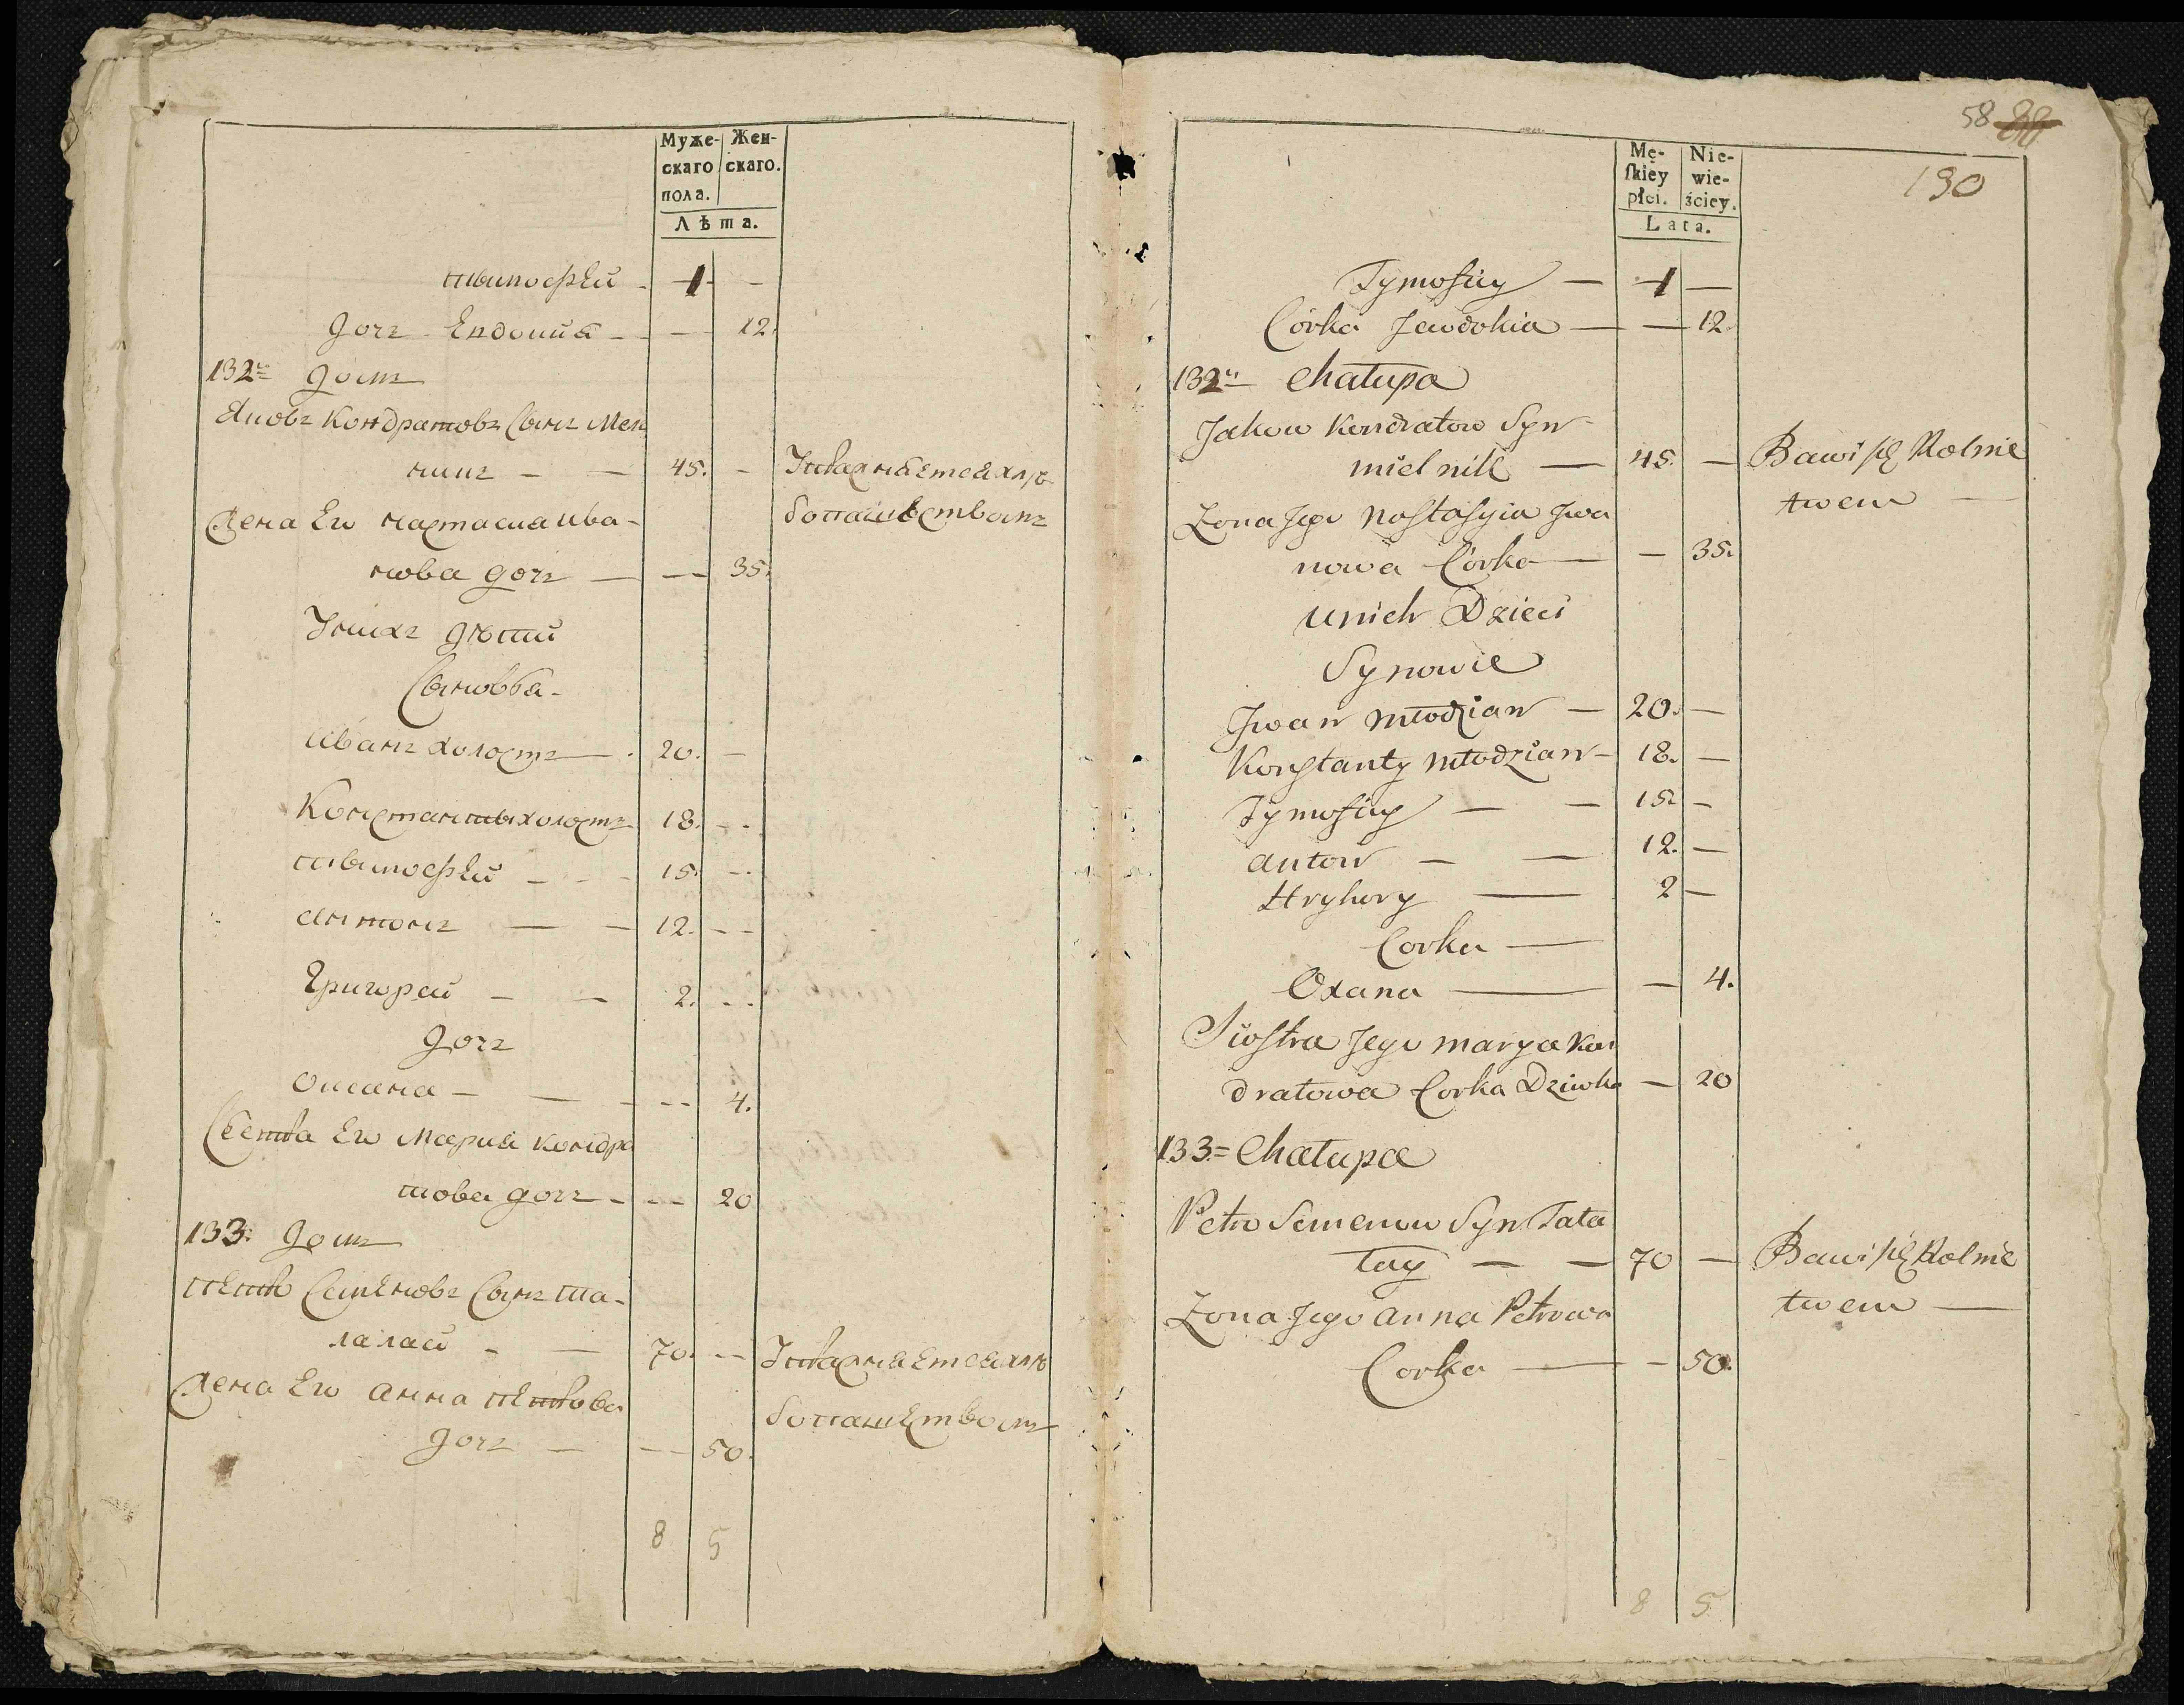 Муже-
скаго
пола.
Жен-
скаго.
Лѣта.
тимофей - 1 -
Дочь Евдокия - - 12.
132й Домъ
Яковъ Кондратовъ Сынъ Мел
никъ - - 45. - Упражняется хлѣ
Жена Его настасиа ива-
бопашеством
нова дочь - - 35.
У нихъ дѣти
Сыновья
Иванъ холостъ - 20. -
Константинъ холостъ 18. -
тимофей - 15. -
антонъ - - 12. -
Григорей - - 2. -
Дочь
Оксана - - - 4.
Сестра Его Мария кондра
това дочь - - 20
133. Домъ
петръ Семеновъ Сынъ та-
лалай - - 70. - Упражняется хлѣ
Жена Его анна петрова
бопашеством
дочь - - 50.
8 5
58
190
Mę-
ſkiey
płci.
Nie-
wie-
ściey.
Lata.
Tymofiey - 1 -
Córka Jewdokia - - 12.
132a Chałupa
Jakow Kondratow Syn
mielnik - 45. - Bawi ſię Rolnic
Zona Jego Nastasyia Jwa
twem -
nowa Córka - - 35.
u nich Dzieci
Synowie
Jwan młodzian - 20. -
Konstanty młodzian - 18. -
Tymofiey - - 15. -
anton - - 12. -
Hryhory - 2 -
Corka -
Oxana - - 4.
Siostra Jego marya Kon
dratowa Corka Dziwka - 20
133= Chałupa
Petro Semenow Syn Tała
łay - - 70 - Bawi ſię Rolnic
Zona Jego anna Petrowa
twem -
Corka - - 50.
8 5